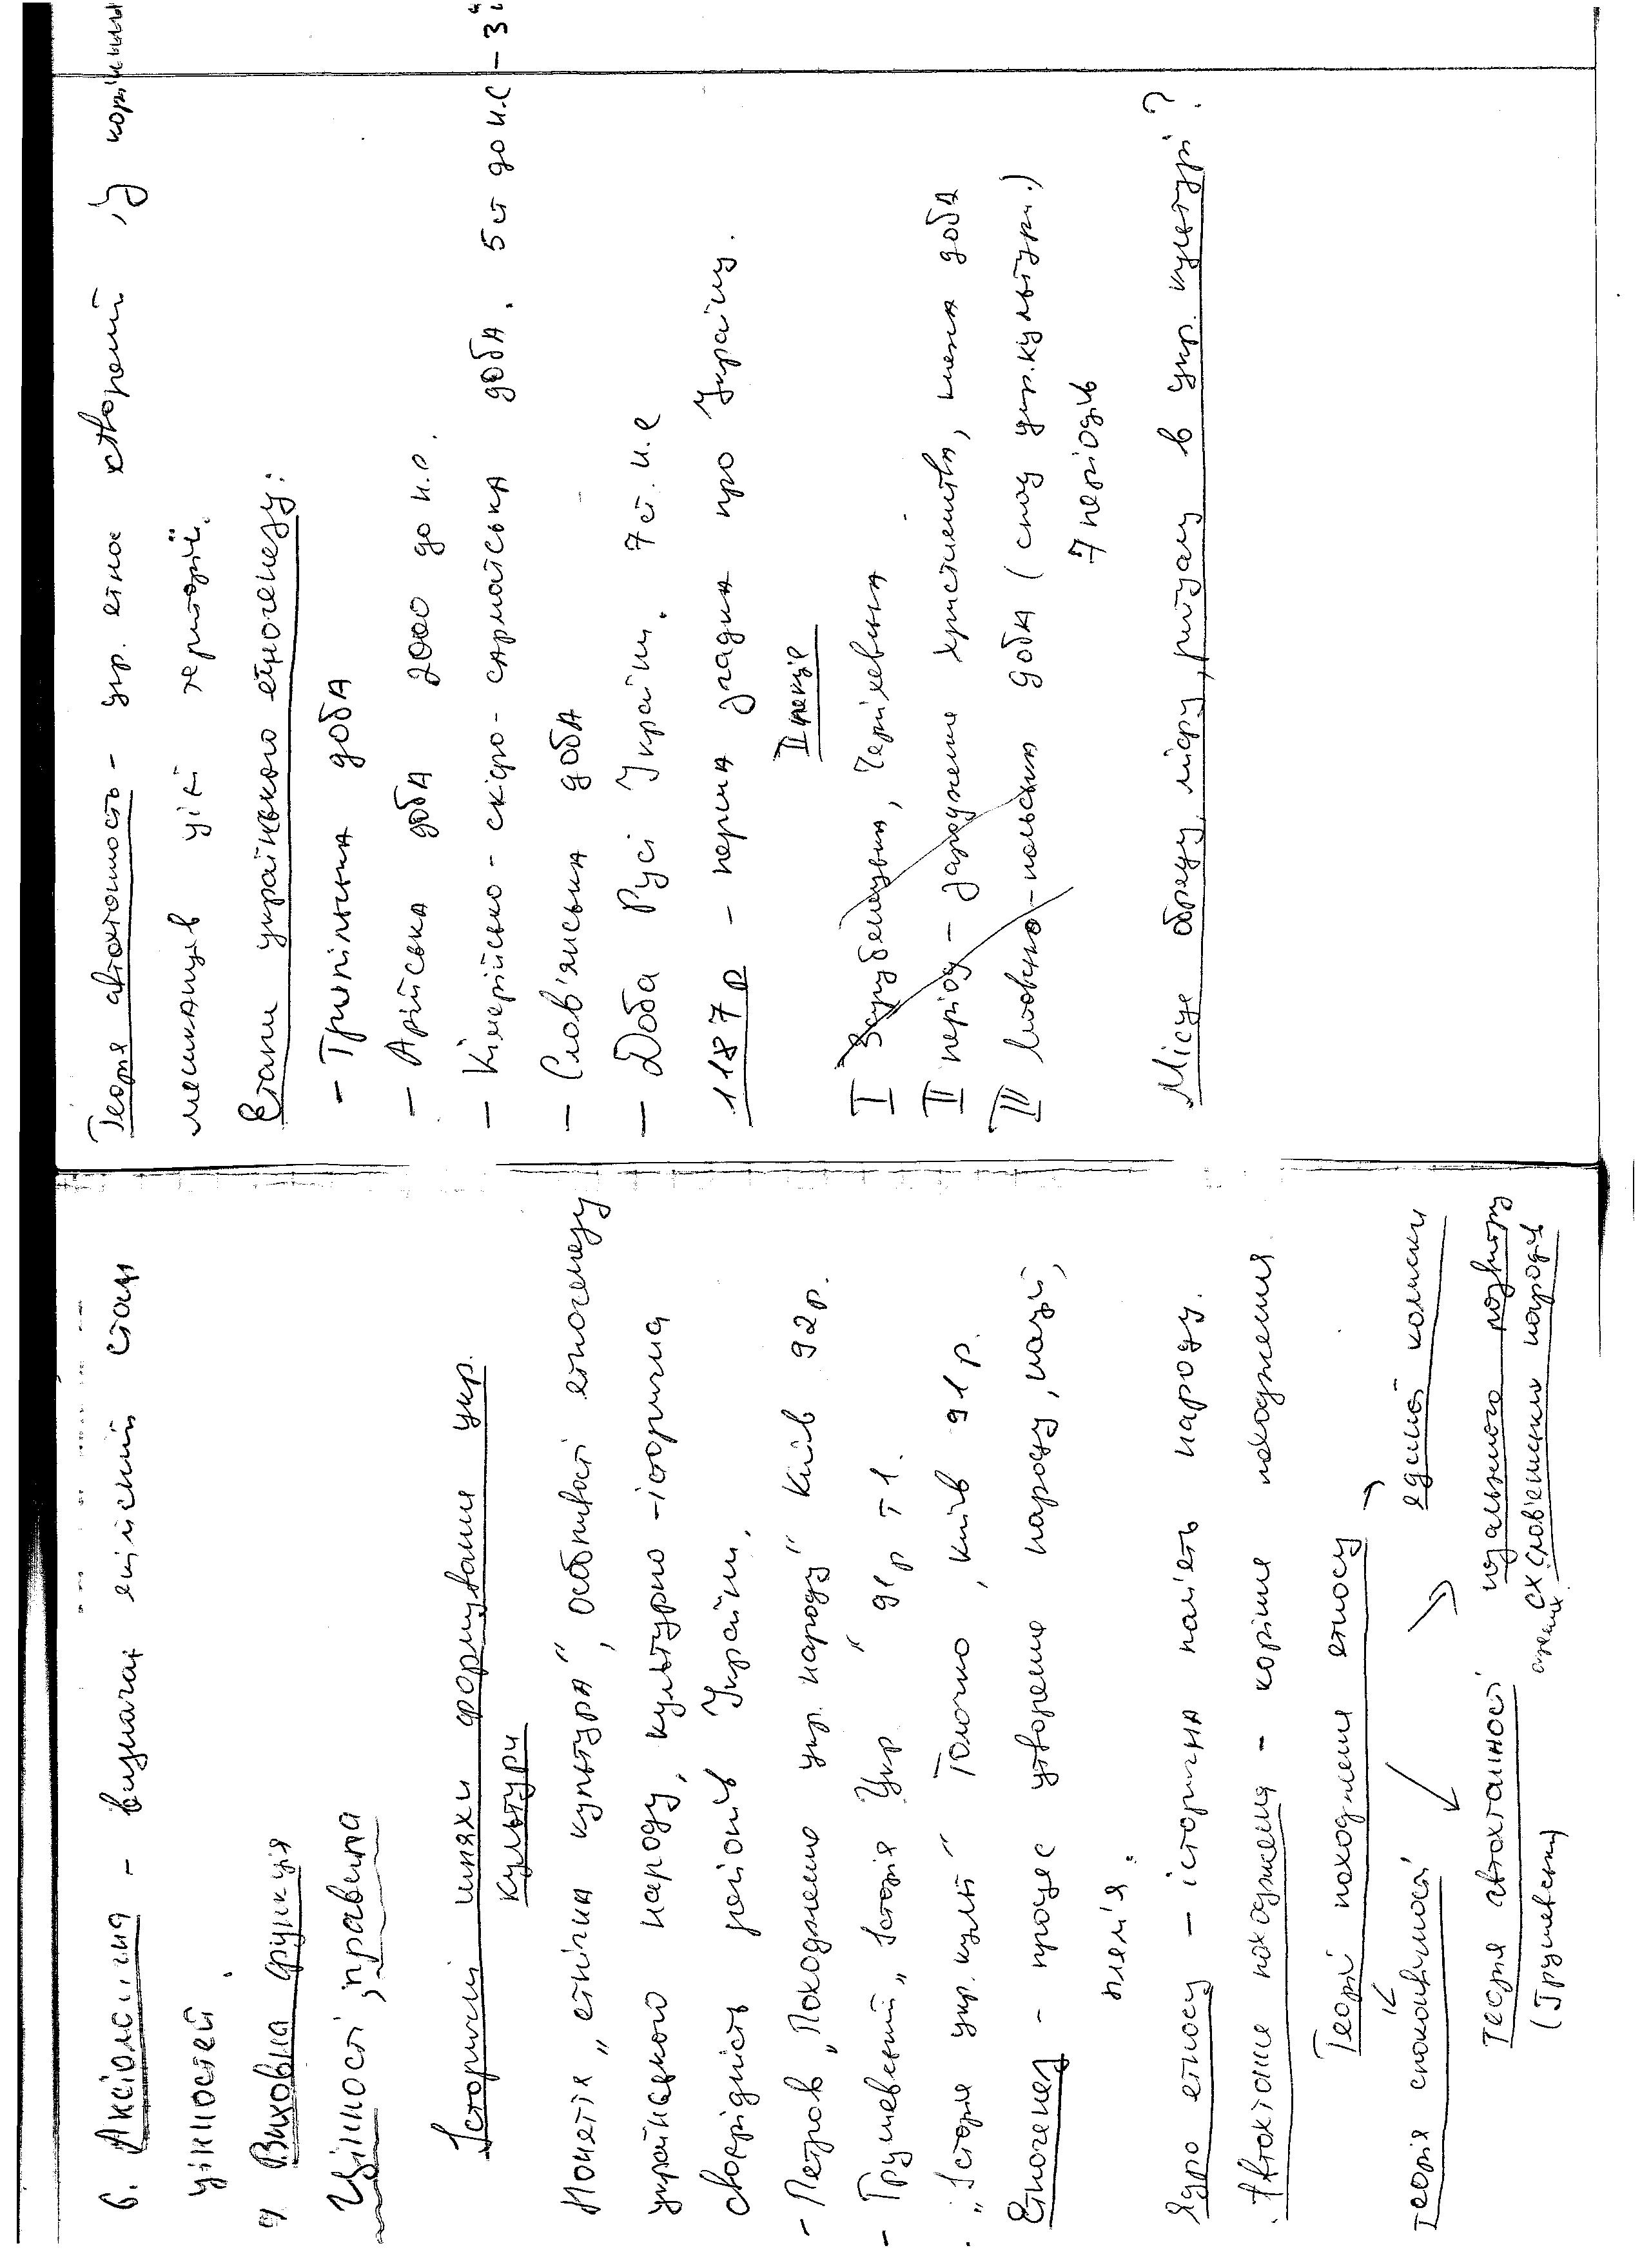 6. Аксіолог.чна - визначає якісний стан
цінностей.
7 Виховна функція
Цінності, правила
Історичні шляхи формування укр.
культури
Поняття „етнічна культура", особливості етногенезу
українського народу, культурно-історична
своєрідність регіонів України.
- Петров „Походження укр. народу" Київ 92р.
- Грушевський „Історія Укр" 91р т1.
- „Історія укр. культ" Толочко, київ 91р.
Етногенез - процес утворення народу, нації,
плем'я.
Ядро етносу - історична пам'ять народу.
Автохтонне походження - корінне походження.
Теорії походження етносу
Теорія споконвічності
єдиної колиски
Теорія автохтонності
(Грушевський)
уцального розвитку
сх. слов'янських народів
Теорія автохтоность - укр. етнос створений із корінних
мешканців цієї території.
Етапи українського етногенезу:
- Трипільська доба
- Арійська доба 2000 до н.е.
- Кімерійсько-скіфо-сарматська доба. 5 ст до н.е - 3
- Слов'янська доба
- Доба Русі Україні. 7 ст. н.е
1187 р - перша згадка про Україну.
II лекція
I Зарубенецька, Черняхівська
II період - зародження християнства, княжа доба
III литовсько-польська доба (спад укр. культури.)
7 періодів
Місце обряду, міфу, ритуалу в укр. культурі?